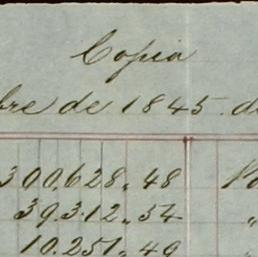 Copia
bre de 1845. de
300,628,, 48
39.312,, 54
10.251,, 49